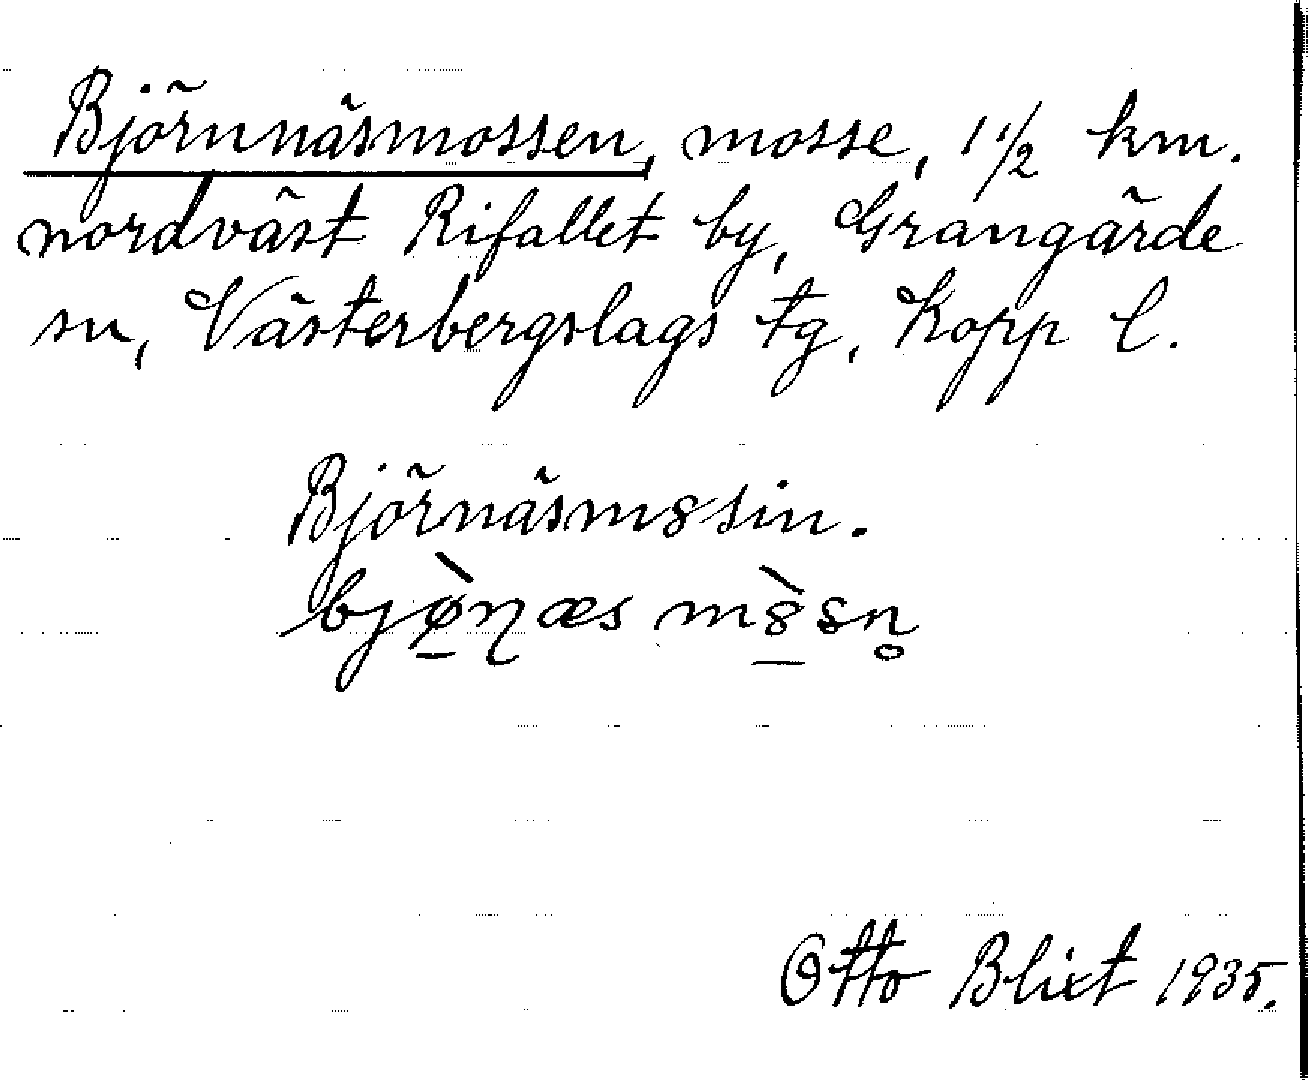 Björnnäsmossen, mosse, 1 1/2 km.
nordväst Rifallet by, Grangärde
sn, Västerbergslags tg, Kopp l.
Björnäsm8sin.
bjø̱̀ɳæs m8̱̀sn̥
Otto Blixt 1935.